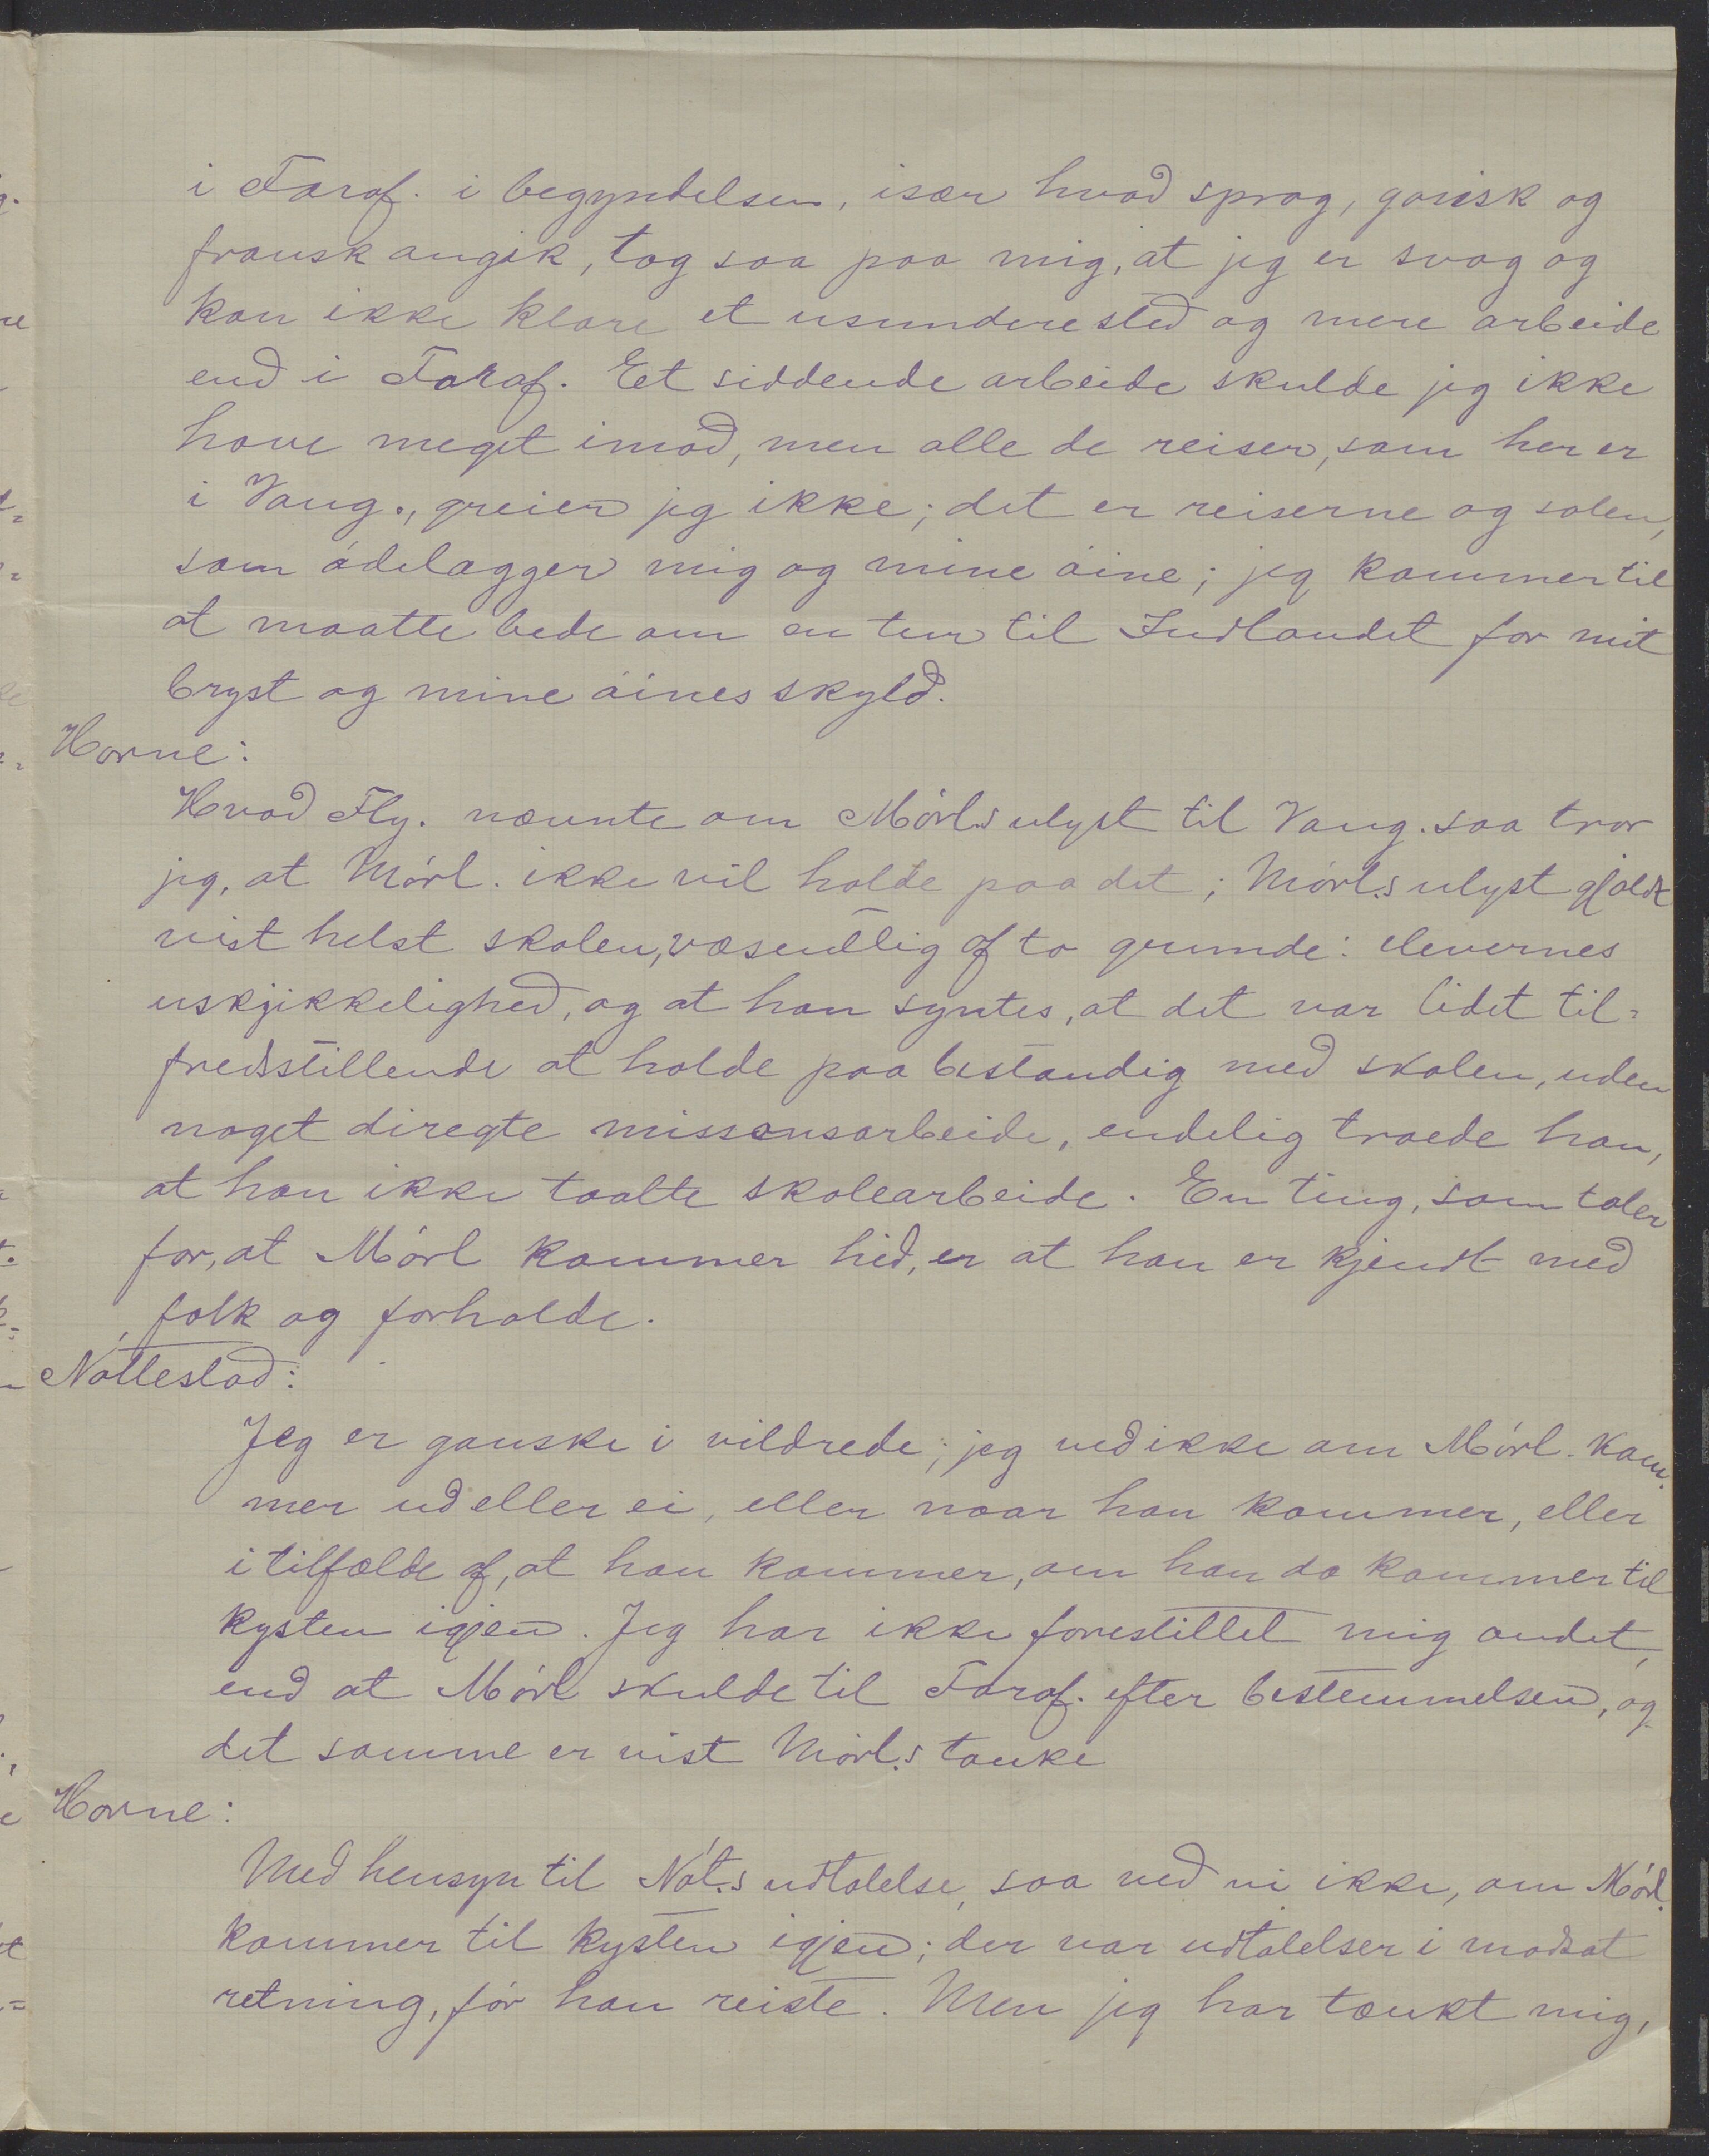 i Faraf. i begyndelsen, især hvad sprog, gasisk og
fransk angik, tog saa paa mig, at jeg er svag og
kan ikke klare et usundere sted og mere arbeide
end i Faraf. Et siddende arbeide skulde jeg ikke
have meget imod, men alle de reiser, som her er
i Vang., greier jeg ikke; det er reiserne og solen,
som ódelægger mig og mine óine; jeg kommer til
at maatte bede om en tur til Indlandet for mit
bryst og mine óines skyld.
Horne:
Hvad Fly. nævnte om Mórl.s ulyst til Vang. saa tror
jeg, at Mórl. ikke vil holde paa det; Mórl.s ulyst gjaldt
vist helst skolen, væsentlig af to grunde: elevernes
uskjikkelighed, og at han syntes, at det var lidet til=
fredsstillende at holde paa bestandig med skolen, uden
noget direqte missonsarbeide, endelig troede han,
at han ikke taalte skolearbeide. En ting, som taler
for, at Mórl kommer hid, er at han er kjendt med
folk og forholde.
Nóttestad:
Jeg er ganske i vildrede; jeg ved ikke om Mórl. kom-
mer ud eller ei, eller naar han kommer, eller
i tilfælde af, at han kommer, om han da kommer til
kysten igjen. Jeg har ikke forestillet mig andet,
end at Mórl skulde til Faraf. efter bestemmelsen, og
det samme er vist Mórl.s tanke
Horne:
Med hensyn til Nót.s udtalelse, saa ved vi ikke, om Mórl.
kommer til kysten igjen; der var udtalelser i modsat
retning, fór han reiste. Men jeg har tænkt mig,